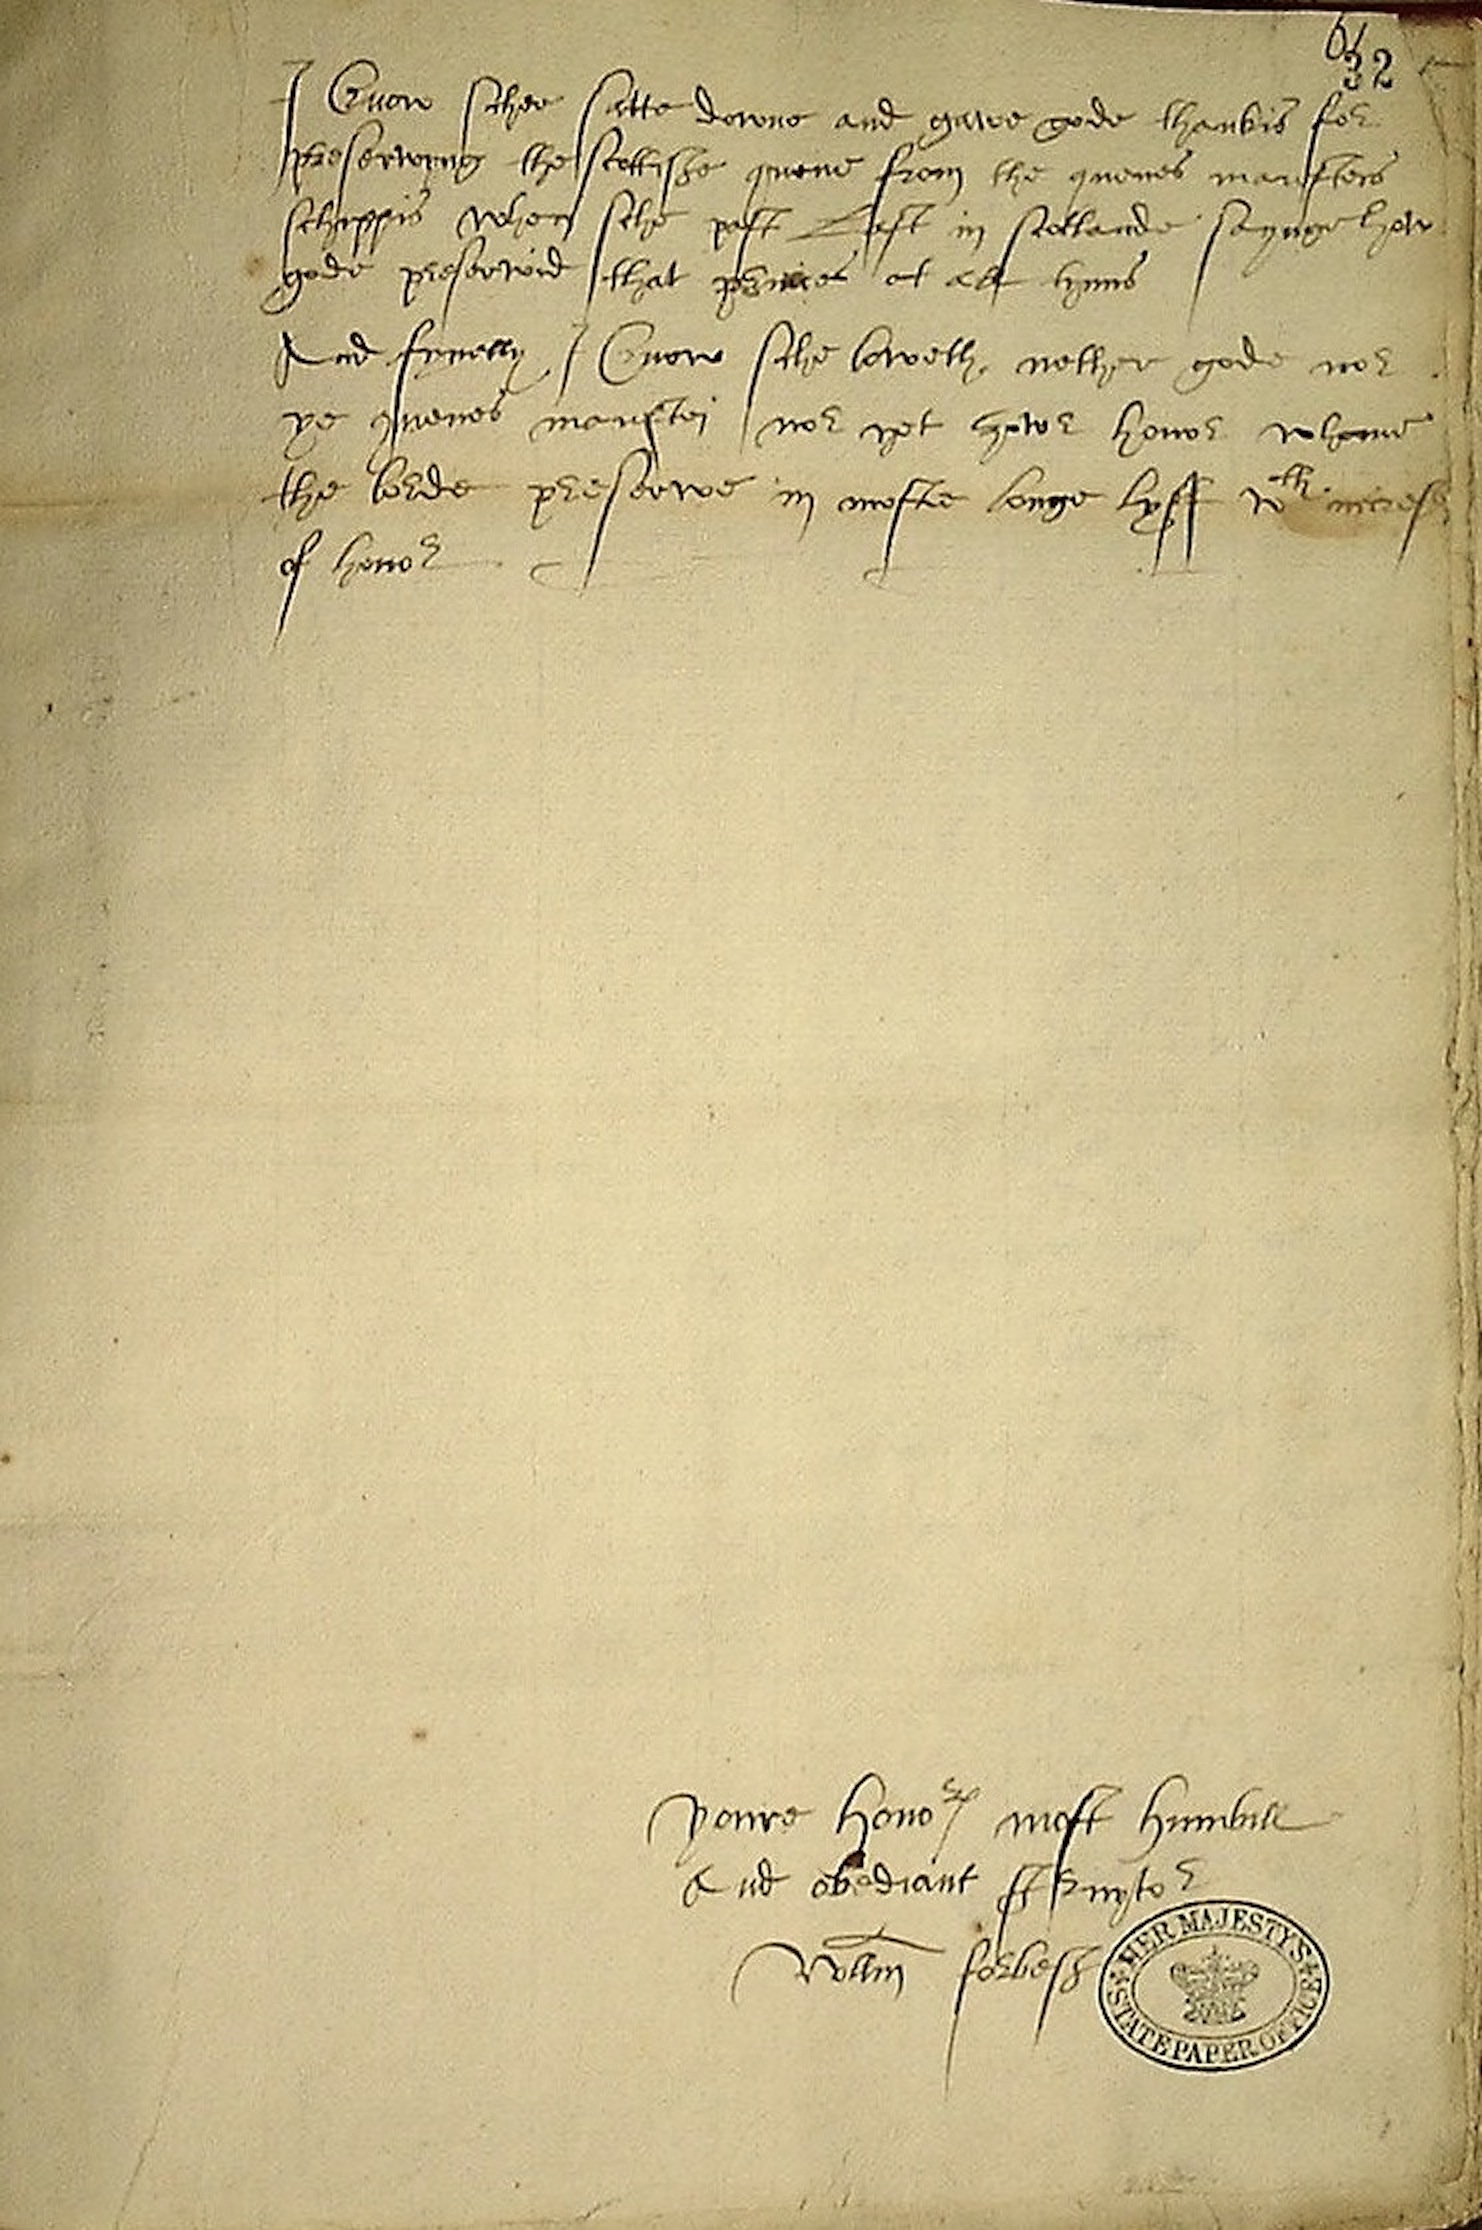 61
32
I Know schee satte downe and gawe gode thankis for
preserwyng the scottishe quene from the quenes maiesteis
schippis when sche past last in scotlande saynge how
gode preserwid that princes at all tyms
And fynally I Know sche loweth nether gode nor
ye quenes maiestei nor yet yowr honor whome
the lorde preserwe in moste longe lyff wth incress
of honor
youre honors most humbill
And obediant serwytor
Wyllm forbess
HER MAJESTY'S
STATE PAPER OFFICE